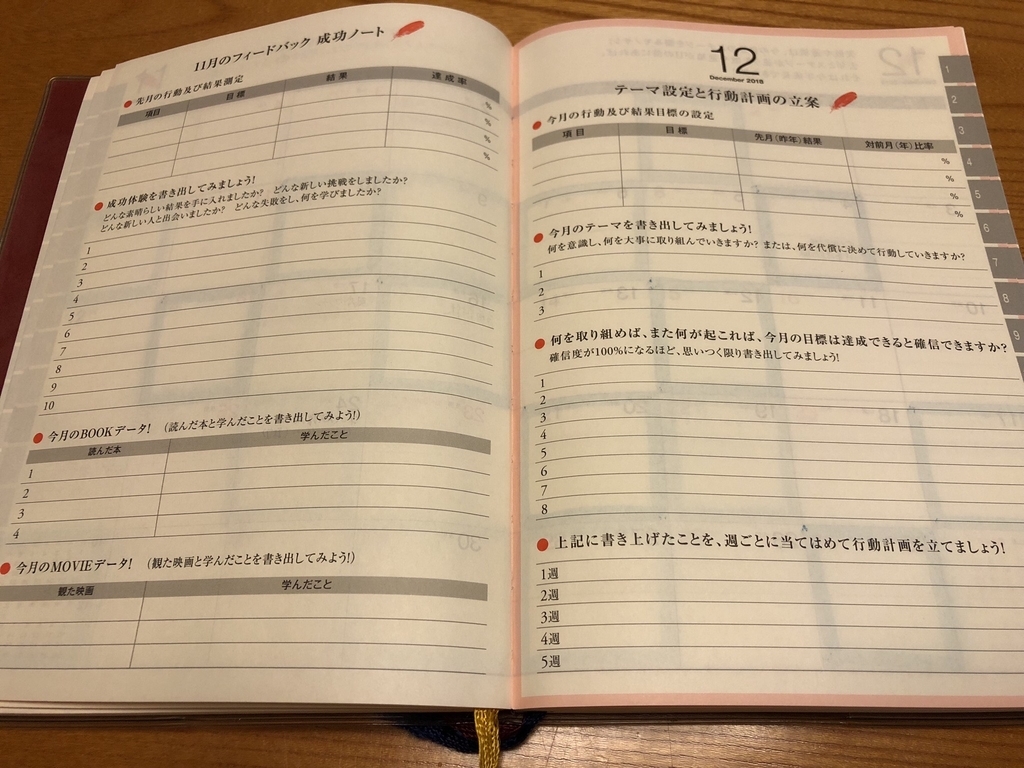 11月のフィードバック 成功ノート
先月の行動及び結果測定
項目 目標 結果 達成率
%
%
%
%
成功体験を書き出してみましょう!
どんな素晴らしい結果を手に入れましたか? どんな新しい挑戦をしましたか?
どんな新しい人と出会いましたか? どんな失敗をし、何を学びましたか?
1
2
3
4
5
6
7
8
9
10
今月のBOOKデータ! (読んだ本と学んだことを書き出してみよう!)
読んだ本 学んだこと
1
2
3
4
今月のMOVIEデータ! (観た映画と学んだことを書き出してみよう!)
観た映画 学んだこと
12
December 2018
テーマ設定と行動計画の立案
今月の行動及び結果目標の設定
項目 目標 先月(昨年)結果 対前月(年)比率
%
%
%
%
今月のテーマを書き出してみましょう!
何を意識し、何を大事に取り組んでいきますか? または、何を代償に決めて行動していきますか?
1
2
3
何を取り組めば、また何が起これば、今月の目標は達成できると確信できますか?
確信度が100%になるほど、思いつく限り書き出してみましょう!
1
2
3
4
5
6
7
8
上記に書き上げたことを、週ごとに当てはめて行動計画を立てましょう!
1週
2週
3週
4週
5週
1
2
3
4
5
6
7
8
9